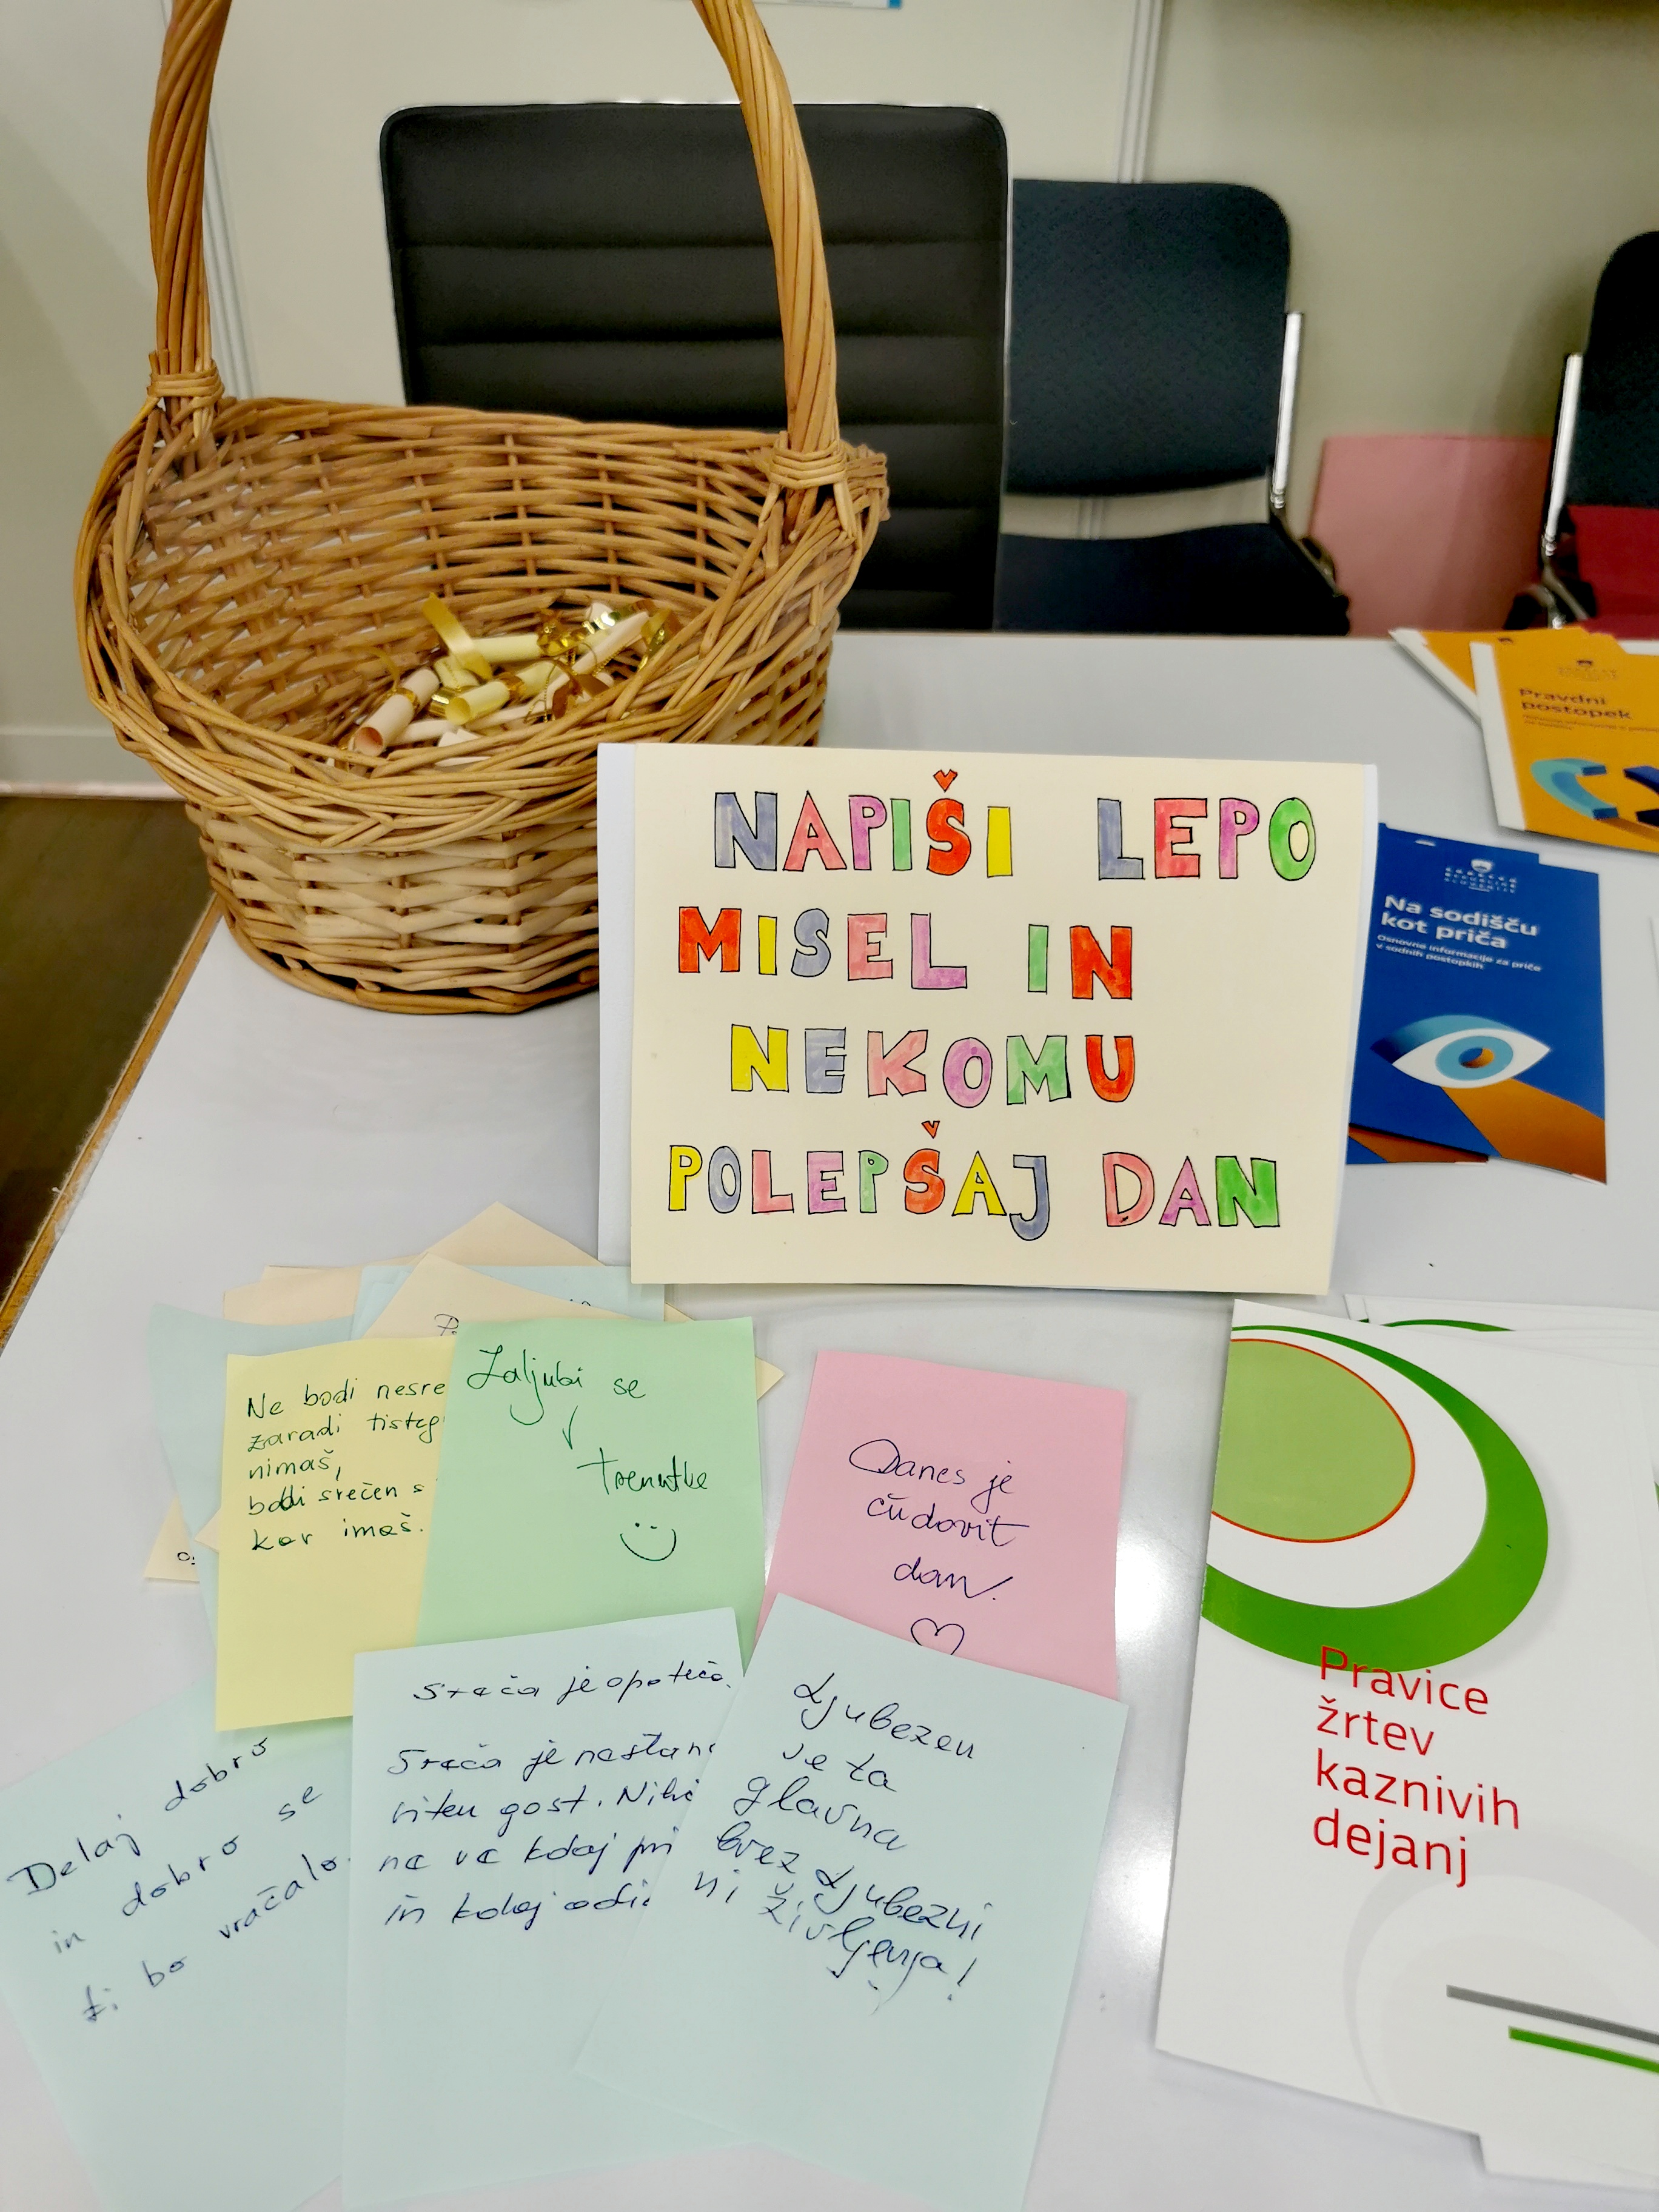 NAPIŠI LEPO
MISEL IN
NEKOMU
POLEPŠAJ DAN
Pravdni
postopek
Na sodišču
kot priča
Osnovne informacije za priče
v sodnih postopkih
Ne bodi nesre
zaradi tisteg
nimaš,
bodi srečen s
kar imaš.
Zaljubi se
v
trenutke
Danes je
čudovit
dan.
Sreča je opoteča.
Sreča je nestano
viten gost. Nihč
ne ve kdaj pri
in kdaj odi
Ljubezen
je ta
glavna
brez ljubezni
ni življenja!
Delaj dobro
in dobro se
ti bo vračalo.
Pravice
žrtev
kaznivih
dejanj